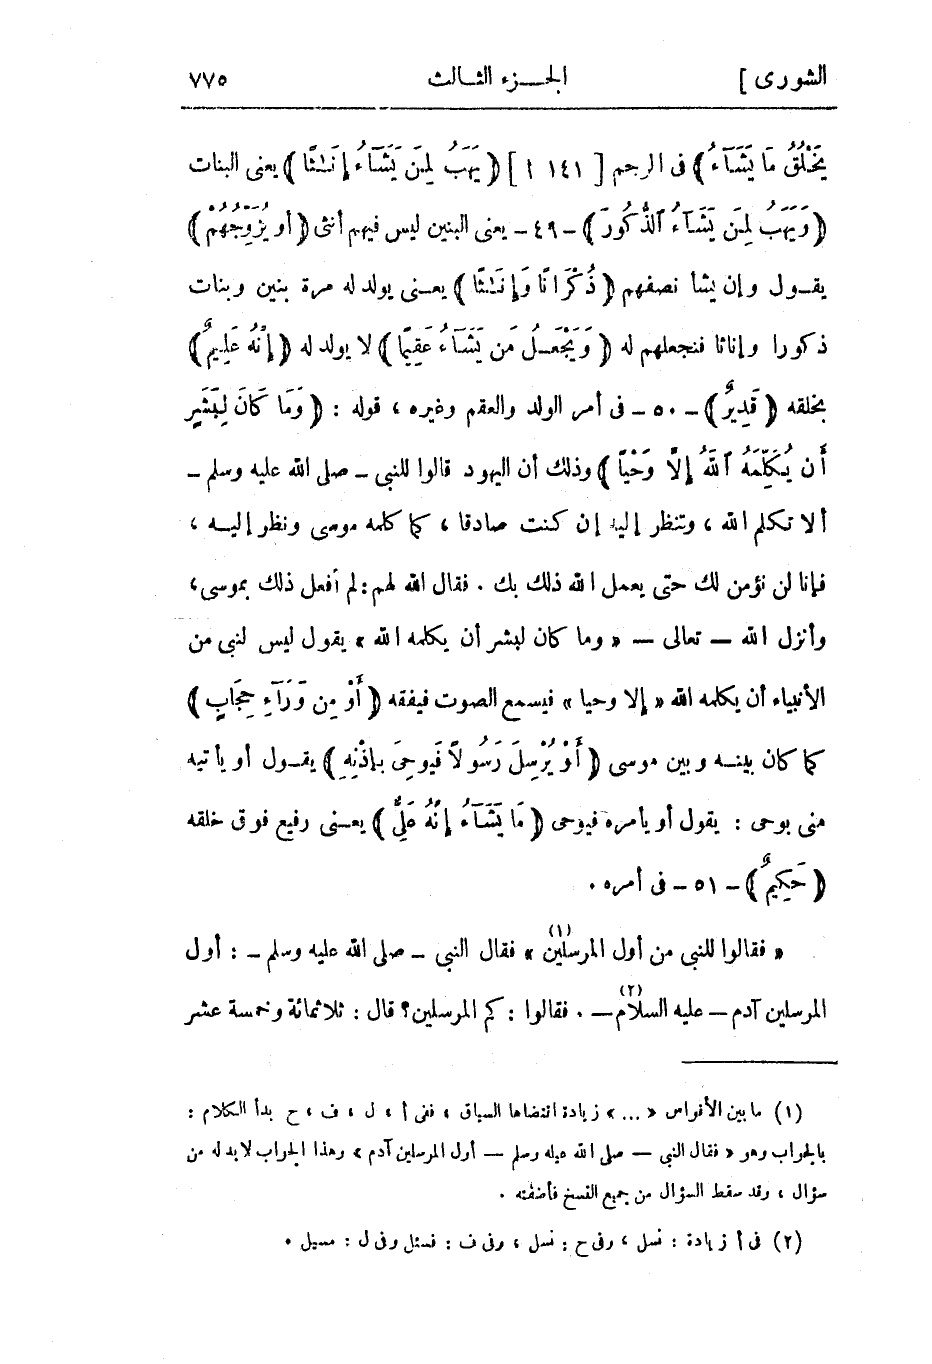 الشورى ] الجـــزء الثـالث ٧٧٥
يَخْلُقُ مَا يَشَآءُ ) فى الرحم [ ١٤١ أ ] ( يَهَبُ لِمَن يَشَآءُ إِنَـٰثًا ) يعنى البنات
( وَيَهَبُ لِمَن يَشَآءُ ٱلذُّكُورَ ) ـ ٤٩ ـ يعنى البنين ليس فيهم أنثى ( أَو يُزَوِّجُهُمْ )
يقـول وإن يشأ نصفهم ( ذُكْرَانًا وَإِنَـٰثًا ) يعـنى يولد له مرة بنين وبنات
ذكورا وإناثا فنجعلهم له ( وَيَجْعَـلُ مَن يَشَآءُ عَقِيمًا ) لا يولد له ( إِنَّهُ عَلِيمٌ )
بخلقه ( قَدِيرٌ ) ـ ٥٠ ـ فى أمر الولد والعقم وغيره ، قوله : ( وَمَا كَانَ لِبَشَرٍ
أَن يُكَلِّمَهُ ٱللَّهُ إِلَّا وَحْيًا ) وذلك أن اليهود قالوا للنبى ـ صلى الله عليه وسلم ـ
ألا تكلم الله ، وتنظر إليه إن كنت صادقا ، كما كلمه موسى ونظر إليـه ،
فإنا لن نؤمن لك حتى يعمل الله ذلك بك . فقال الله لهم : لم أفعل ذلك بموسى ،
وأنزل الله — تعالى — « وما كان لبشر أن يكلمه الله » يقول ليس لنبى من
الأنبياء أن يكلمه الله « إلا وحيا » فيسمع الصوت فيفقه ( أَوْ مِن وَرَآءِ حِجَابٍ )
كما كان بينـه وبين موسى ( أَوْ يُرْسِلَ رَسُولًا فَيُوحِىَ بِإِذْنِهِ ) يقـول أو يأتيه
منى بوحى : يقول أو يأمره فيوحى ( مَا يَشَآءُ إِنَّهُ عَلِىٌّ ) يعـنى رفيع فوق خلقه
( حَكِيمٌ ) ـ ٥١ ـ فى أمره .
« فقالوا للنبى من أول المرسلين » (١) فقال النبى ـ صلى الله عليه وسلم ـ : أول
المرسلين آدم — عليه السلام — (٢) . فقالوا : كم المرسلين ؟ قال : ثلاثمائة وخمسة عشر
(١) ما بين الأقواس « ... » زيادة اقتضاها السياق ، ففى أ ، ل ، ف ، ح بدأ الكلام :
بالجواب وهو « فقال النبى — صلى الله عليه وسلم — أول المرسلين آدم » وهذا الجواب لابد له من
سؤال ، وقد سقط السؤال من جميع النسخ فأضفته .
(٢) فى أ زيادة : نسل ، وفى ح : نسل ، وفى ف : فسئل وفى ل : مسيل .